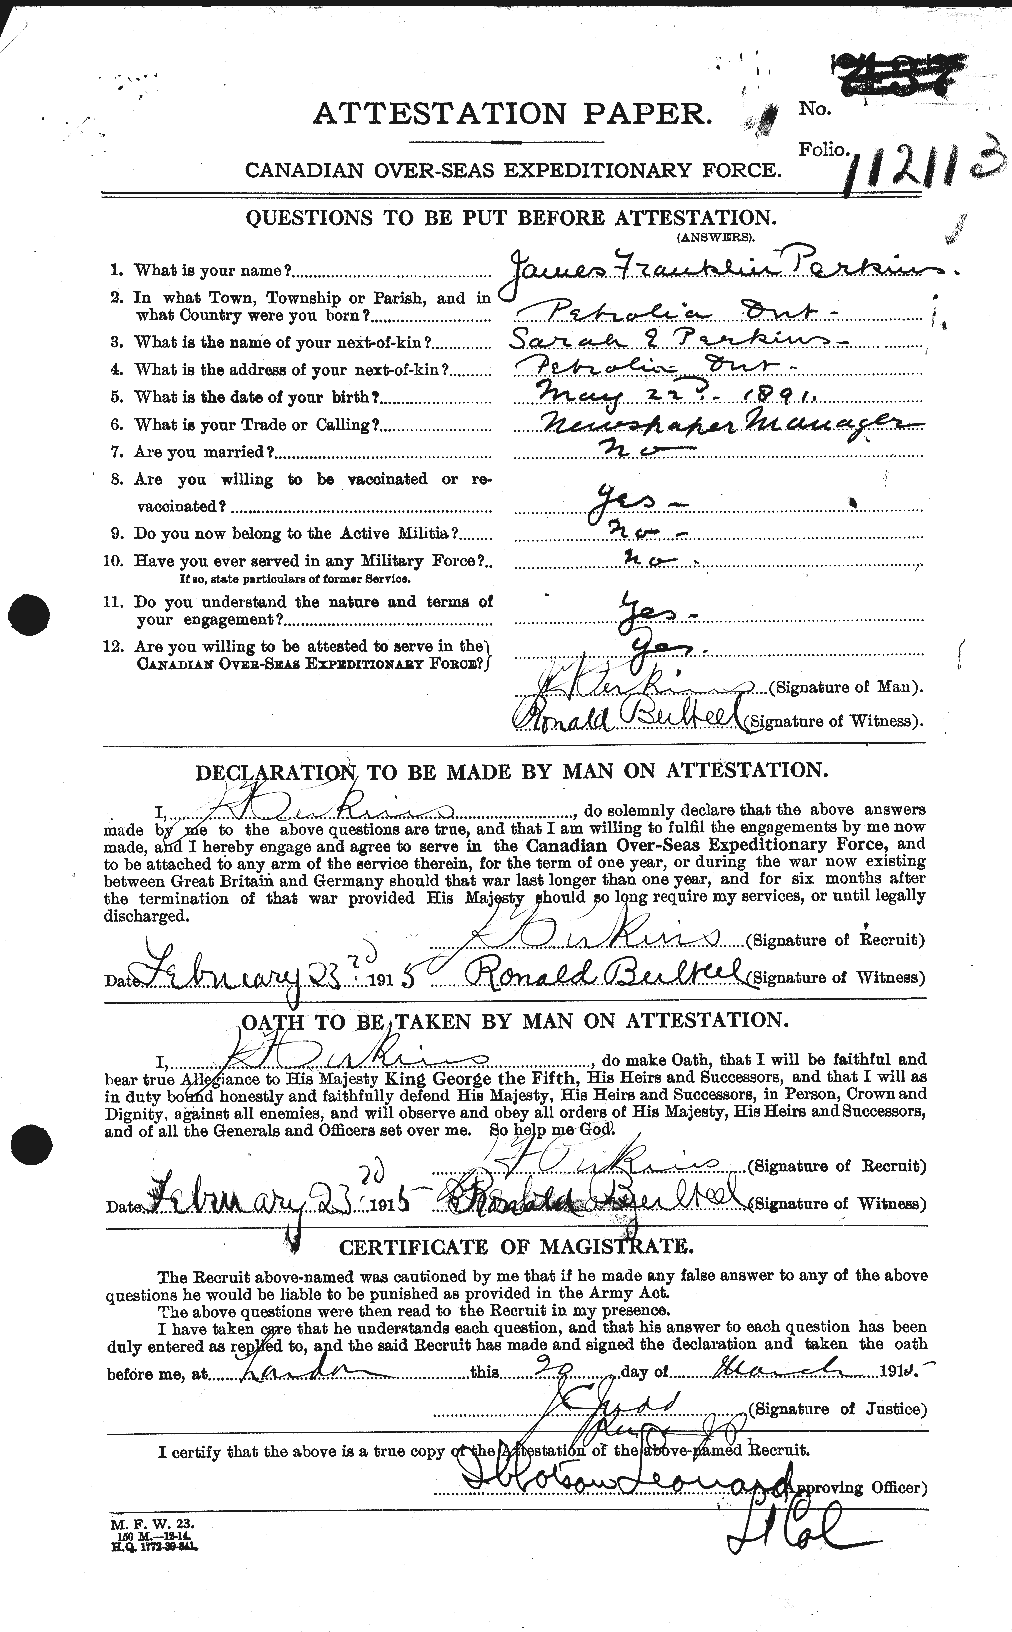 ATTESTATION PAPER.
No. 437
Folio. 112113
CANADIAN OVER-SEAS EXPEDITIONARY FORCE.
QUESTIONS TO BE PUT BEFORE ATTESTATION.
(ANSWERS).
1. What is your name? James Franklin Perkins.
2. In what Town, Township or Parish, and in
what Country were you born? Petrolia Ont -
3. What is the name of your next-of-kin? Sarah E Perkins -
4. What is the address of your next-of-kin? Petrolia Ont -
5. What is the date of your birth? May 22nd - 1891.
6. What is your Trade or Calling? Newspaper Manager
7. Are you married? No
8. Are you willing to be vaccinated or re-
vaccinated? Yes -
9. Do you now belong to the Active Militia? No -
10. Have you ever served in any Military Force? No.
If so, state particulars of former Service.
11. Do you understand the nature and terms of
your engagement? Yes -
12. Are you willing to be attested to serve in the
CANADIAN OVER-SEAS EXPEDITIONARY FORCE? Yes.
J F Perkins (Signature of Man).
Ronald Beilteel (Signature of Witness).
DECLARATION TO BE MADE BY MAN ON ATTESTATION.
I, J F Perkins, do solemnly declare that the above answers
made by me to the above questions are true, and that I am willing to fulfil the engagements by me now
made, and I hereby engage and agree to serve in the Canadian Over-Seas Expeditionary Force, and
to be attached to any arm of the service therein, for the term of one year, or during the war now existing
between Great Britain and Germany should that war last longer than one year, and for six months after
the termination of that war provided His Majesty should so long require my services, or until legally
discharged.
J F Perkins (Signature of Recruit)
Date February 23rd 1915 Ronald Beilteel (Signature of Witness)
OATH TO BE TAKEN BY MAN ON ATTESTATION.
I, J F Perkins, do make Oath, that I will be faithful and
bear true Allegiance to His Majesty King George the Fifth, His Heirs and Successors, and that I will as
in duty bound honestly and faithfully defend His Majesty, His Heirs and Successors, in Person, Crown and
Dignity, against all enemies, and will observe and obey all orders of His Majesty, His Heirs and Successors,
and of all the Generals and Officers set over me. So help me God.
J F Perkins (Signature of Recruit)
Date February 23rd 1915 Ronald Beilteel (Signature of Witness)
CERTIFICATE OF MAGISTRATE.
The Recruit above-named was cautioned by me that if he made any false answer to any of the above
questions he would be liable to be punished as provided in the Army Act.
The above questions were then read to the Recruit in my presence.
I have taken care that he understands each question, and that his answer to each question has been
duly entered as replied to, and the said Recruit has made and signed the declaration and taken the oath
before me, at London this 29 day of March 1915.
J C Judd (Signature of Justice)
I certify that the above is a true copy of the Attestation of the above-named Recruit.
Ibbotson Leonard (Approving Officer)
Lt Col
M. F. W. 23.
150 M.—12-14.
H.Q. 1772-39-841.